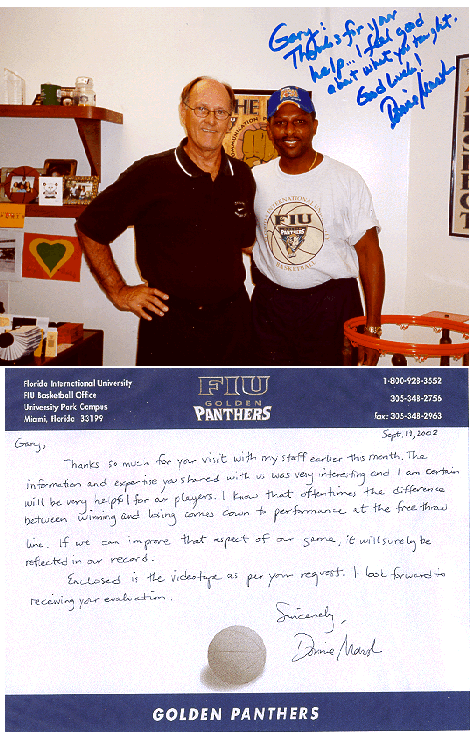 Gary:
Thanks for your
help... I feel good
about what you taught.
Good Luck!
Donnie Marsh
COMMUNICATION
FIU
PANTHERS
BASKETBALL
Florida International University
FIU Basketball Office
University Park Campus
Miami, Florida 33199
FIU
GOLDEN
PANTHERS
1-800-928-3552
305-348-2756
fax: 305-348-2963
Sept. 19, 2002
Gary,
Thanks so much for your visit with my staff earlier this month. The
information and expertise you shared with us was very interesting and I am certain
will be very helpful for our players. I know that oftentimes the difference
between winning and losing comes down to performance at the free throw
line. If we can improve that aspect of our game, it will surely be
reflected in our record.
Enclosed is the videotape as per your request. I look forward to
receiving your evaluation.
Sincerely,
Donnie Marsh
GOLDEN PANTHERS